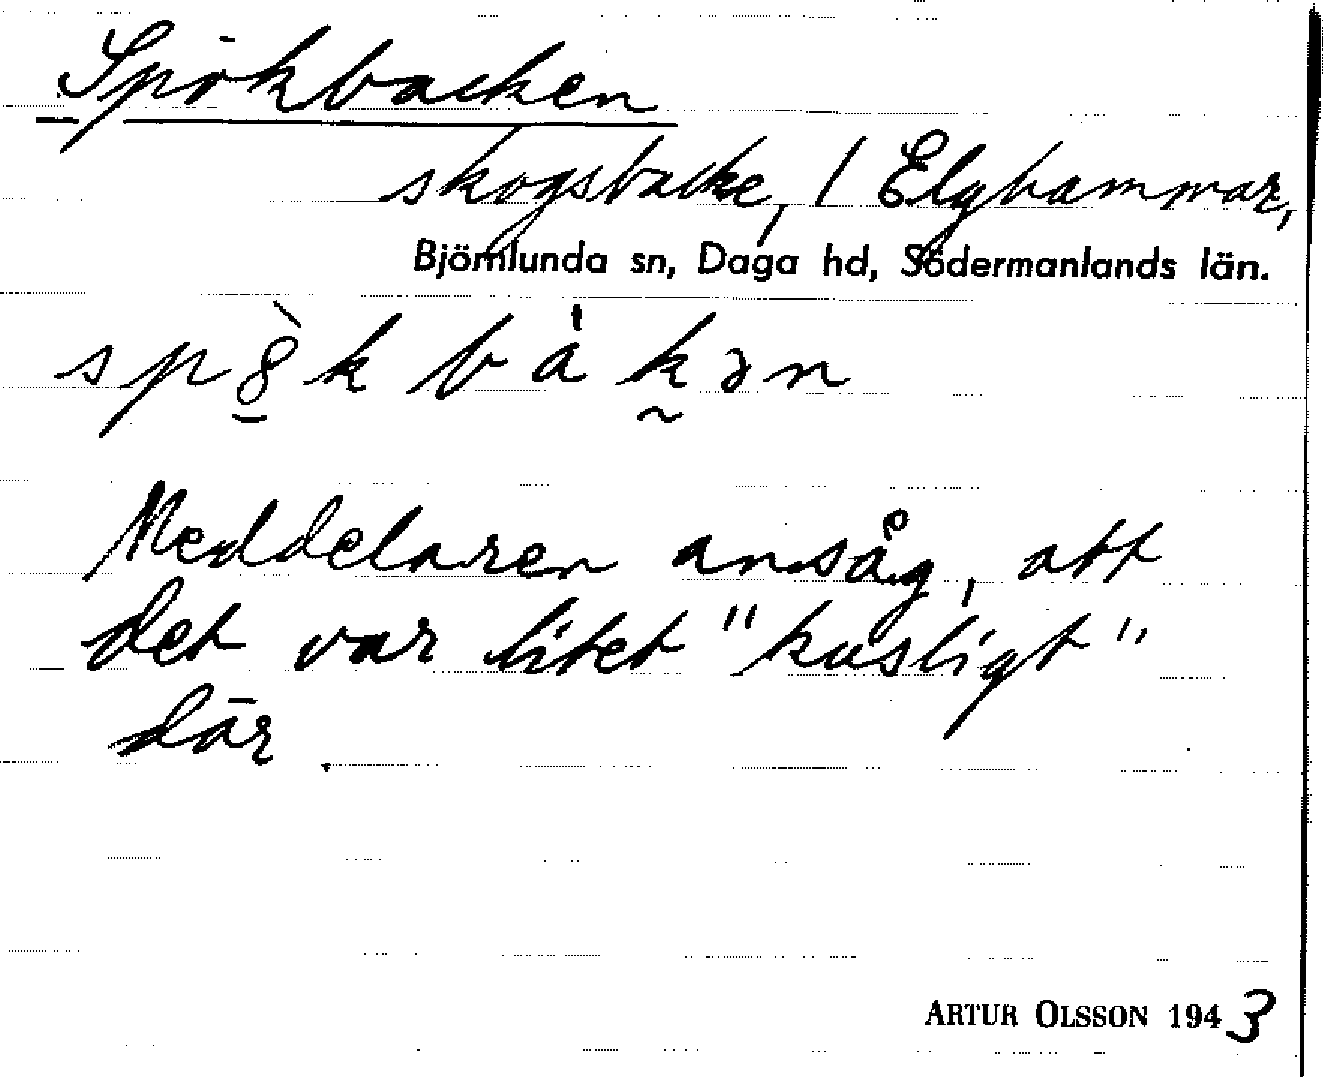 Spökbacken
skogsbacke, / Elghammar,
Björnlunda sn, Daga hd, Södermanlands län.
Meddelaren ansåg, att
det var litet "kusligt"
där.
ARTUR OLSSON 1943